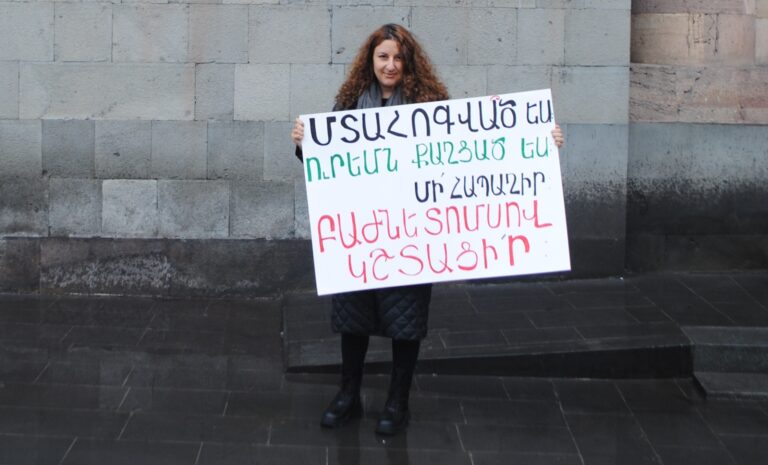 ՄՏԱՀՈԳՎԱԾ ԵՍ
ՈՒՐԵՄՆ ՔԱՂՑԱԾ ԵՍ
ՄԻ՛ ՀԱՊԱՂԻՐ
ԲԱԺՆԵՏՈՄՍՈՎ
ԿՇՏԱՑԻ՛Ր